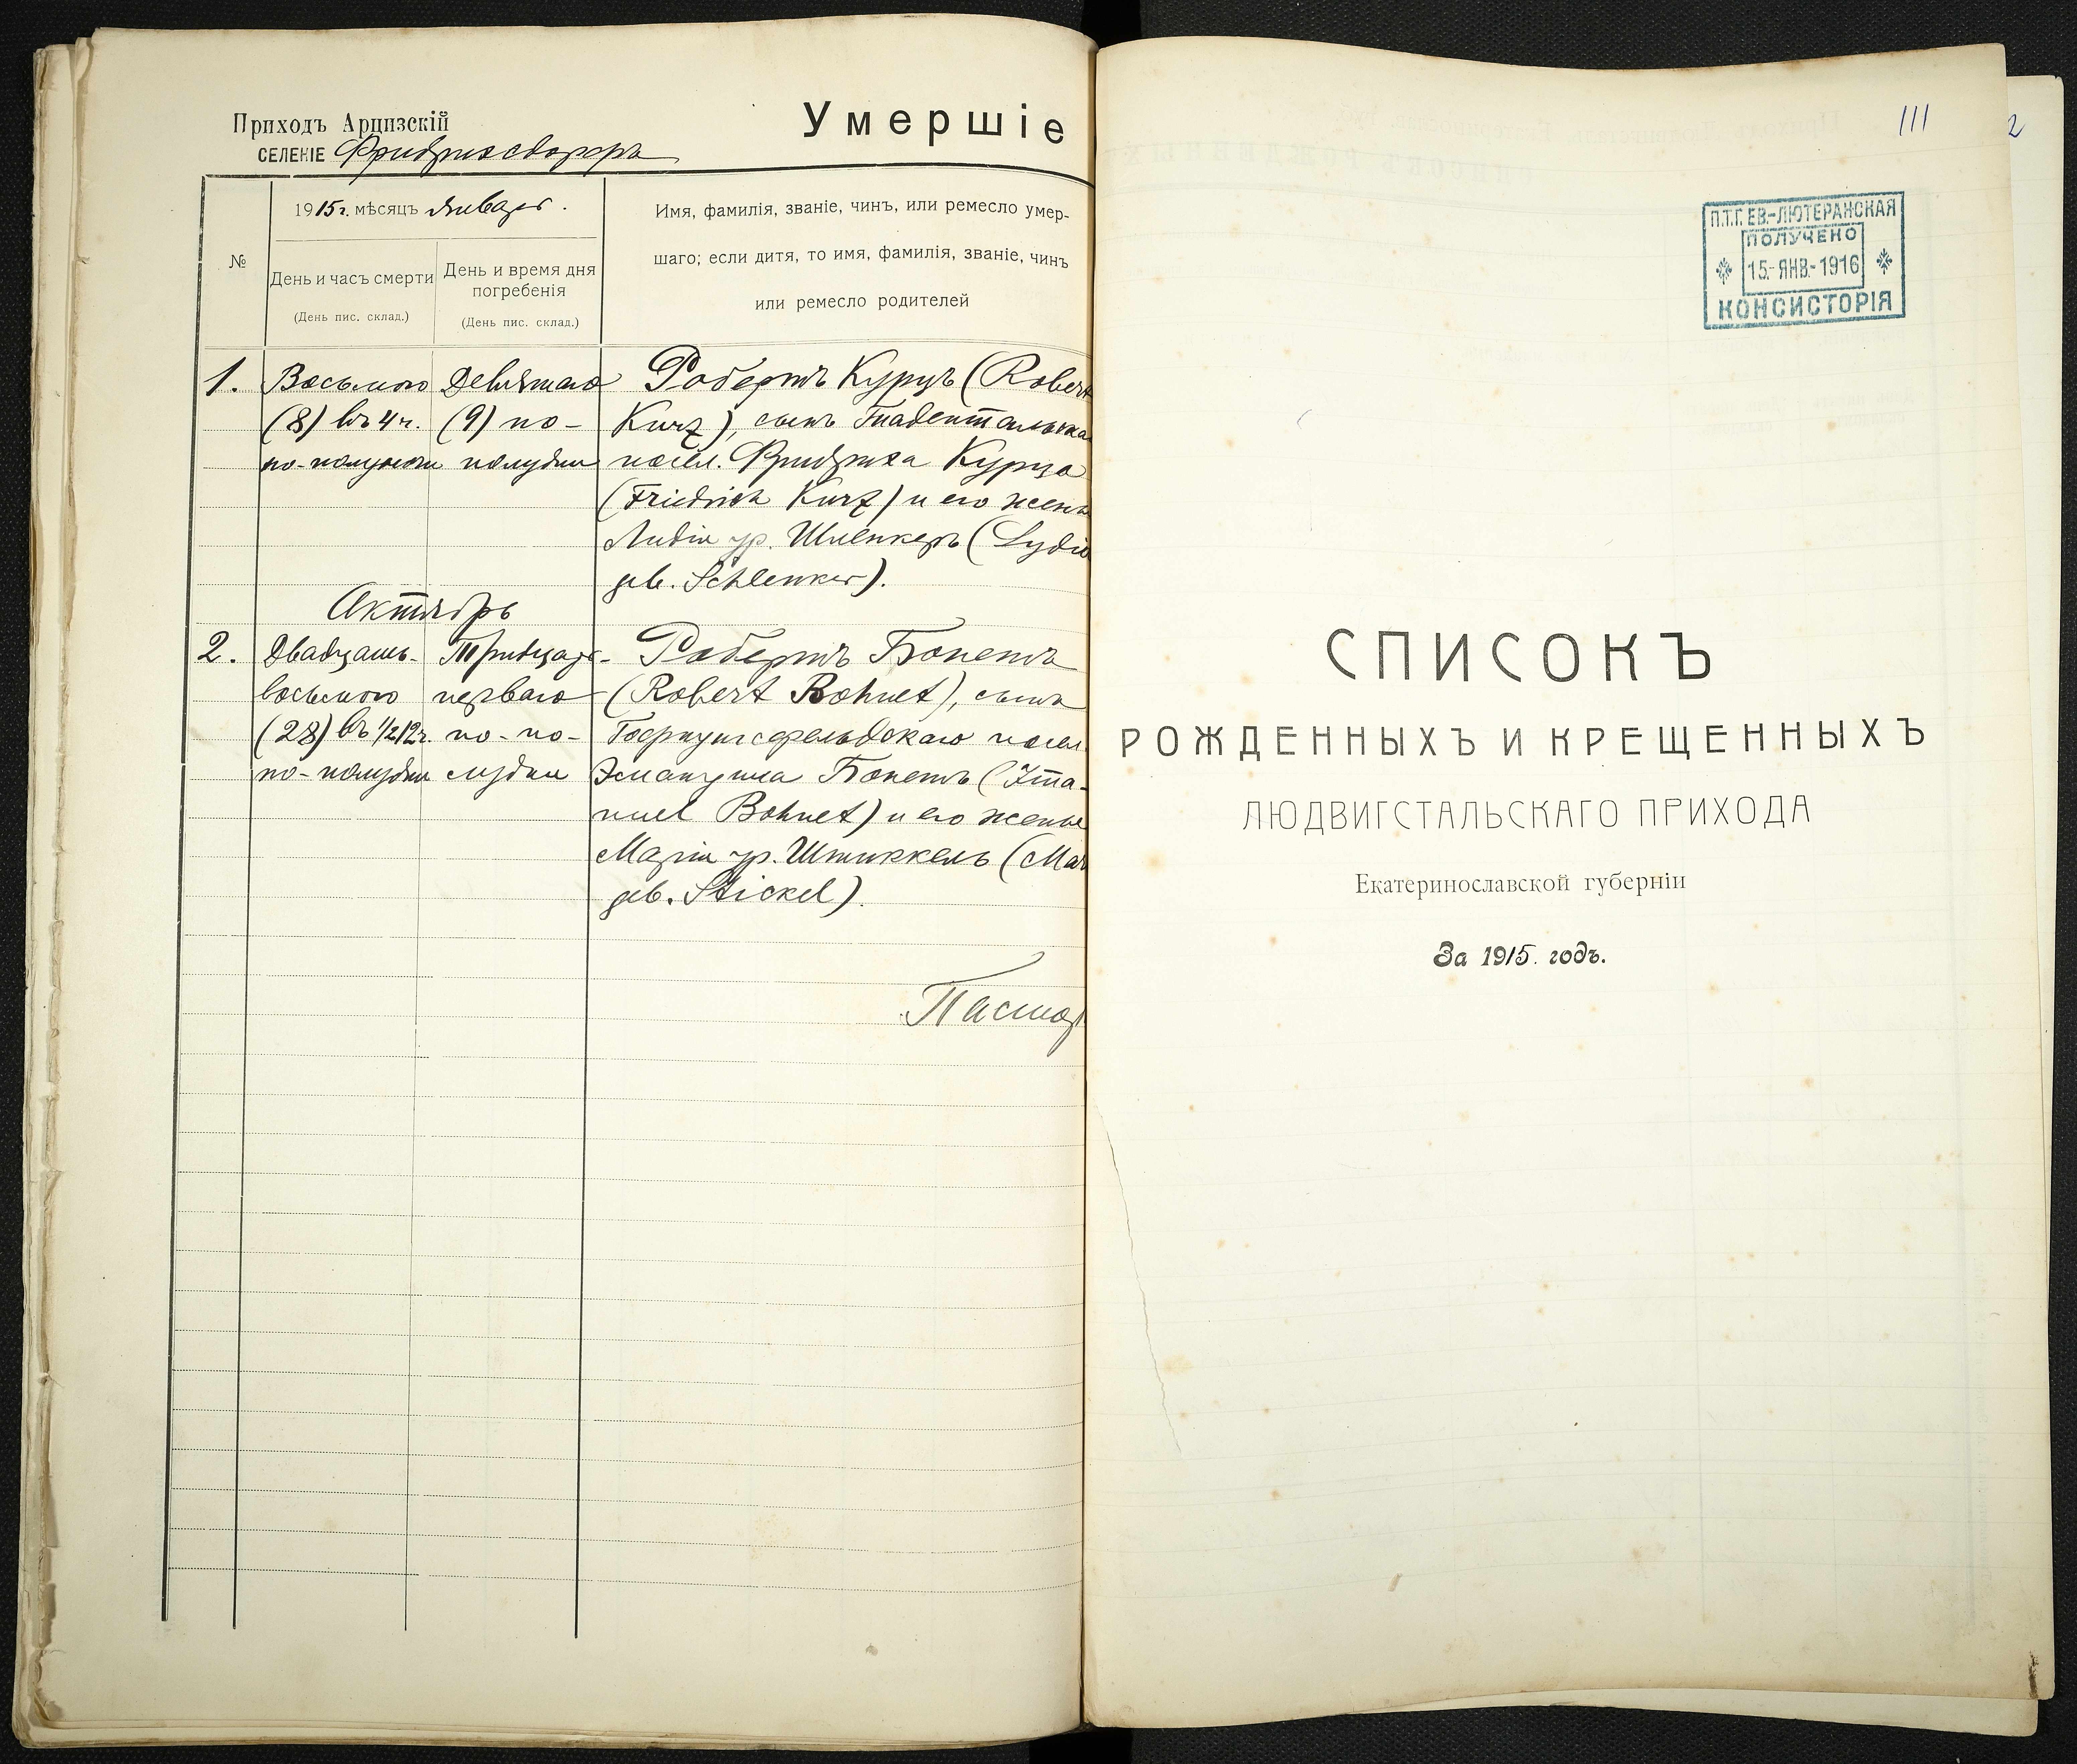 Приходъ Арцизскій
СЕЛЕНІЕ Фридрихсдорфъ
Умершіе
№
1915г. мѣсяцъ Январь.
День и часъ смерти
(День пис. склад.)
День и время дня
погребенія
(День пис. склад.)
Имя, фамилія, званіе, чинъ, или ремесло умер-
шаго; если дитя, то имя, фамилія, званіе, чинъ
или ремесло родителей
1.
Восьмого
(8) въ 4ч.
по-полуночи
Девятаго
(9) по-
полудни
Робертъ Курцъ (Robert
Kurz), сынъ Гнаденталька
посел. Фридриха Курца
(Friedrich Kurz) и его жены
Лидіи ур. Шленкеръ (Lydia
geb. Schlenker).
Актябрь
2.
Двадцать-
восьмого
(28) въ 1/2 12ч.
по-полудни
Тридцать-
перваго
по-по-
лудни
Робертъ Бонетъ
(Robert Bohnet), сынъ
Гофнунгсфельдскаго посел
Эмануила Бонетъ (Ima-
nuel Bohnet) и его жены
Маріи ур. Штиккель (Mar
geb. Stickel).
Пастор
111
2
П.Т.Г. ЕВ.-ЛЮТЕРАНСКАЯ
ПОЛУЧЕНО
15.-ЯНВ.-1916
КОНСИСТОРІЯ
СПИСОКЪ
РОЖДЕННЫХЪ И КРЕЩЕННЫХЪ
ЛЮДВИГСТАЛЬСКАГО ПРИХОДА
Екатеринославской губерніи
За 1915. годъ.